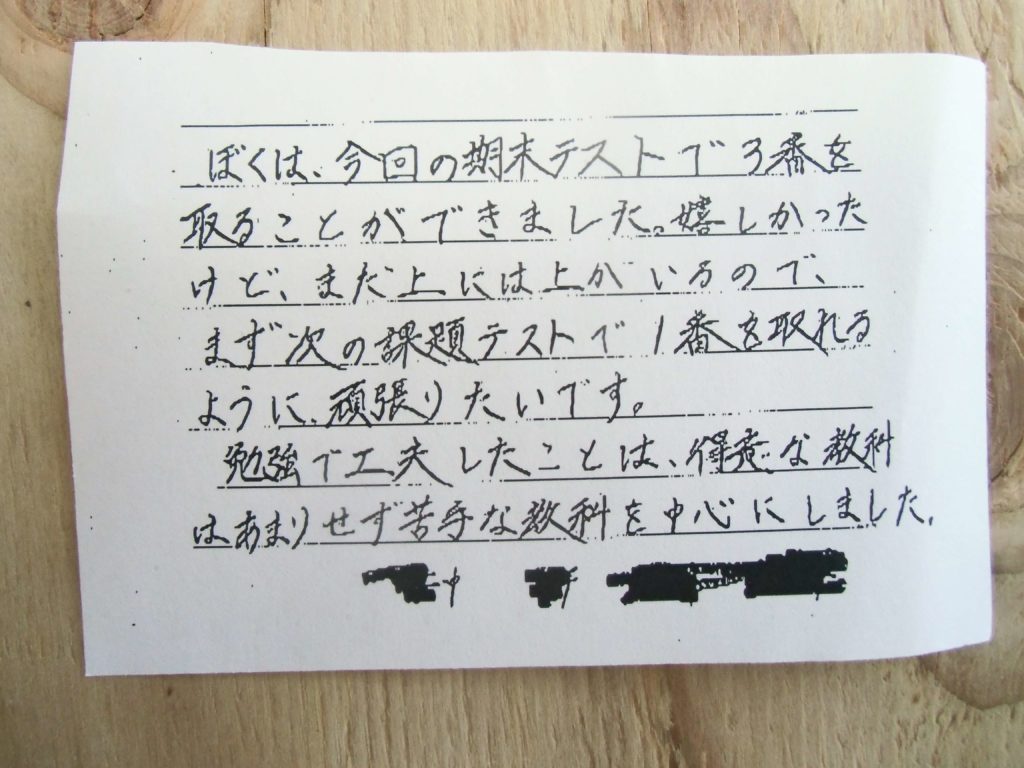 ぼくは、今回の期末テストで3番を
取ることができました。嬉しかった
けど、まだ上には上がいるので、
まず次の課題テストで1番を取れる
ように、頑張りたいです。
勉強で工夫したことは、得意な教科
はあまりせず苦手な教科を中心にしました。
中